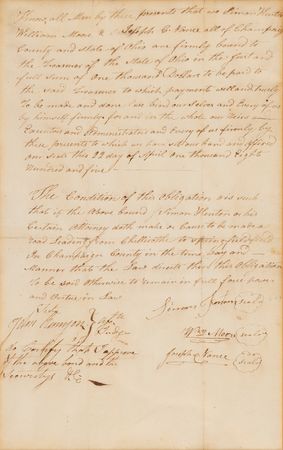 Know all Men by these presents that we Simon Kenton
William Moore & Joseph C. Vance all of Champaign
County and State of Ohio are firmly bound to
the Treasurer of the State of Ohio in the just and
full sum of One thousand Dollars to be paid to
the said Treasurer to which payment well and truely
To be made and done we bind our selves and Every of us
by himself firmly for and in the whole our Heirs
Executors and Administrators and Every of us firmly by
these presents to which we have
our seals this 22 day of April one thousand Eight
Hundred and five
The Condition of this obligation is such
that if the above bound Simon Kenton or his
Certain attorney doth make or cause to be made a
road Leading from Chillicothe to Springfield
In Champaign County in the time Day and
Manner that the Law directs then this Obligation
To be void otherwise to remain in full force power
and Virtue in Law
Simon Kenton seal
Wm Moore seal
Joseph Vance seal
Judge
do Certify that I approve
of the above bond and the
Security &c